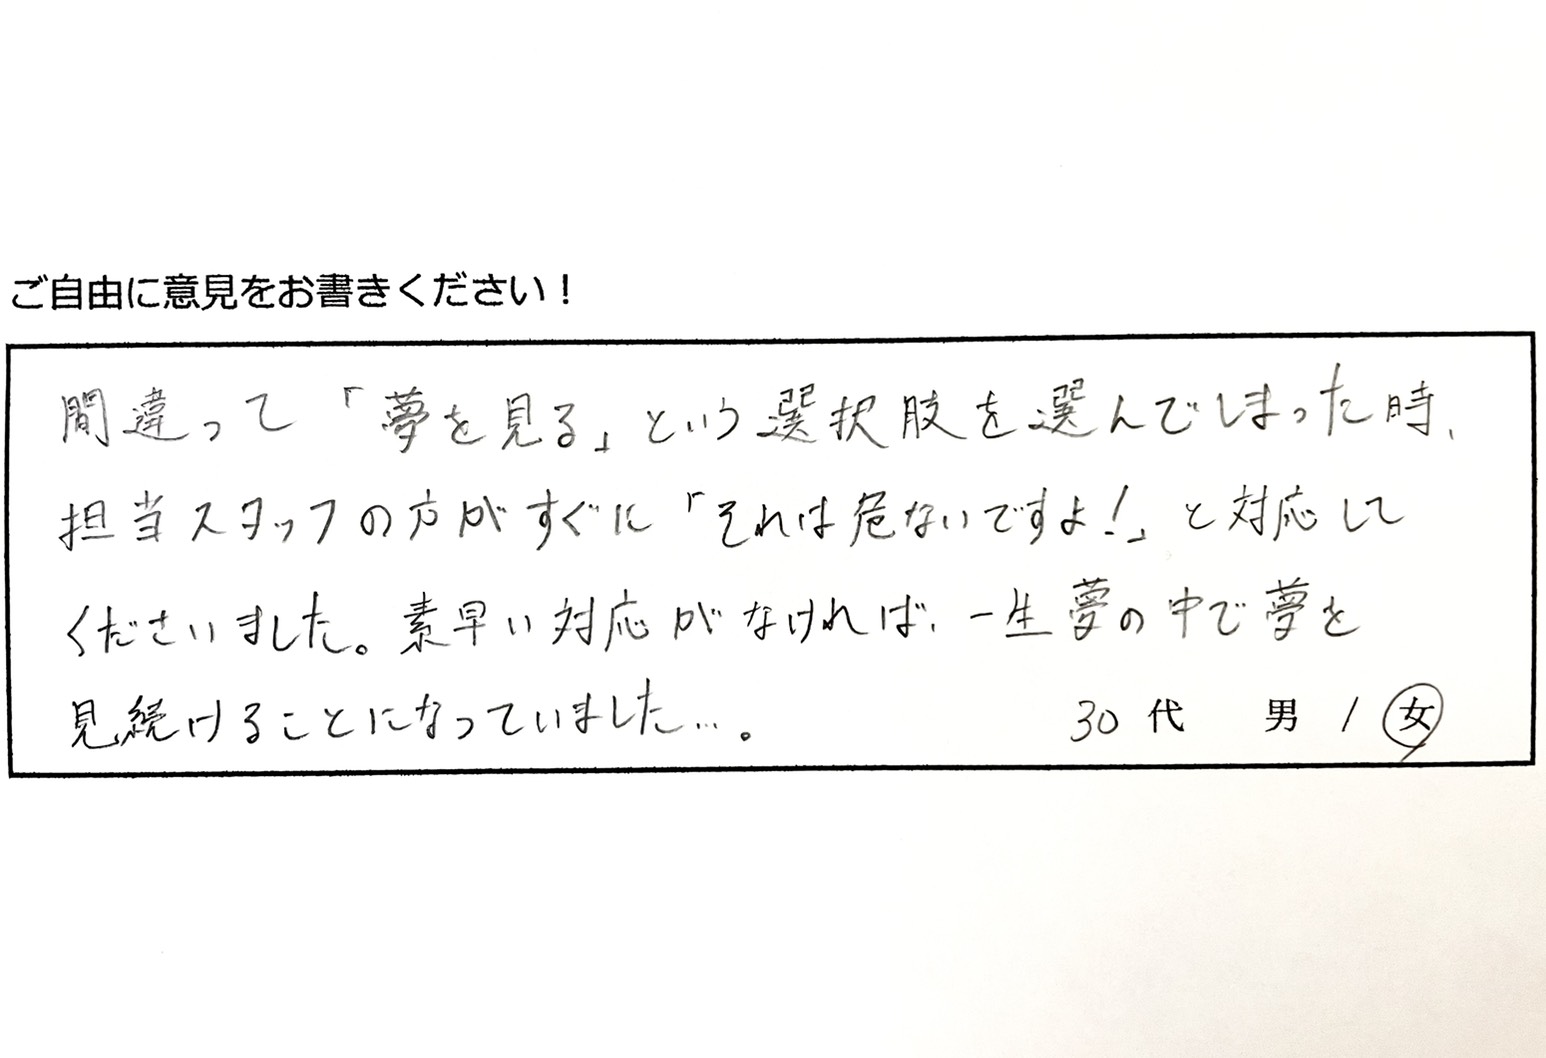 ご自由に意見をお書きください！
間違って「夢を見る」という選択肢を選んでしまった時、
担当スタッフの方がすぐに「それは危ないですよ！」と対応して
くださいました。素早い対応がなければ、一生夢の中で夢を
見続けることになっていました…。
30代 男 / 女